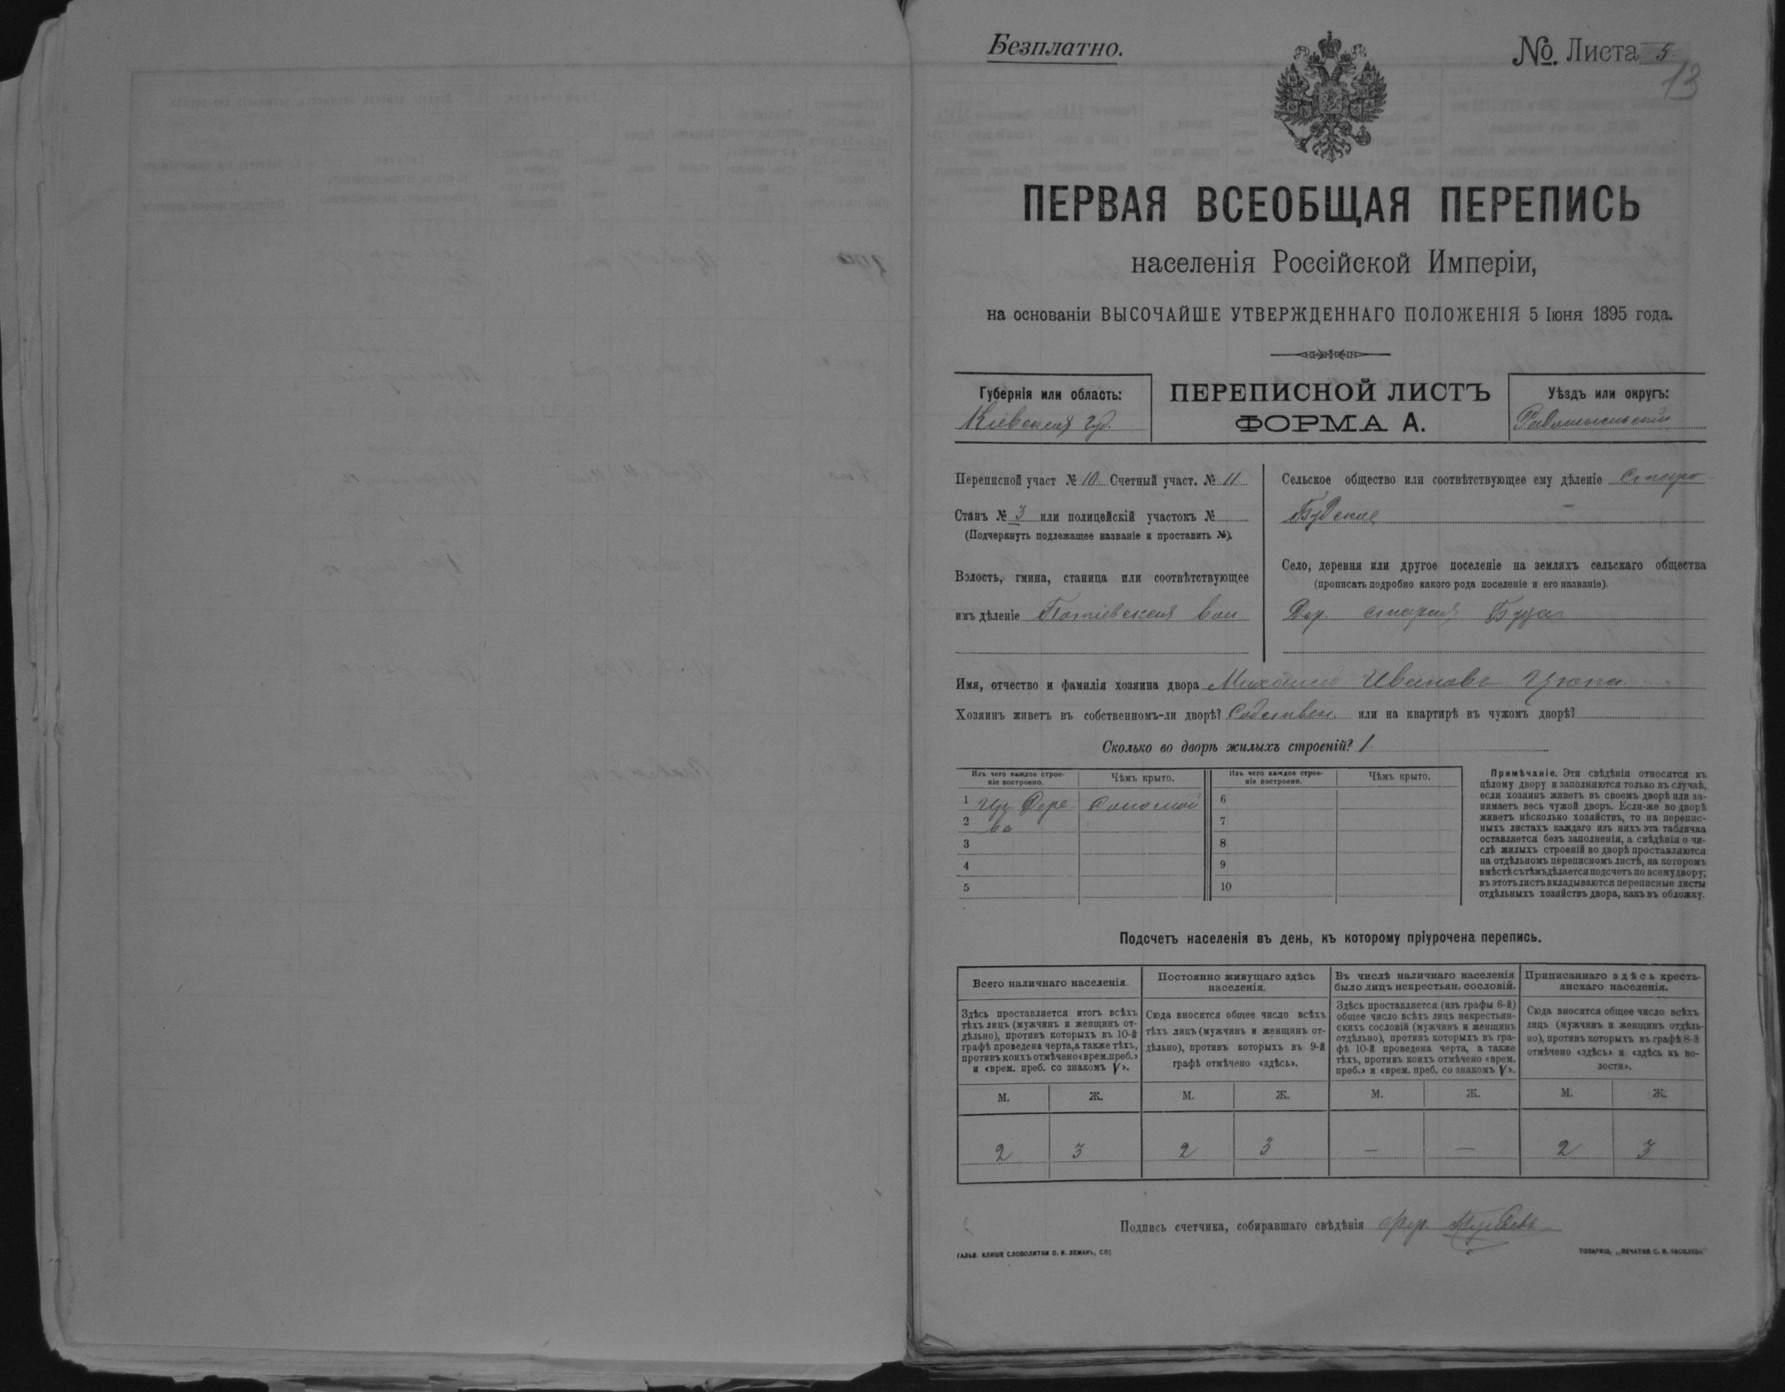 Безплатно.
№ Листа 5
13
ПЕРВАЯ ВСЕОБЩАЯ ПЕРЕПИСЬ
населенія Россійской Имперіи,
на основаніи ВЫСОЧАЙШЕ УТВЕРЖДЕННАГО ПОЛОЖЕНІЯ 5 Іюня 1895 года.
Губернія или область:
Кіевская губ.
ПЕРЕПИСНОЙ ЛИСТЪ
ФОРМА А.
Уѣздъ или округъ:
Радомысльскій
Переписной участ № 10 Счетный участ. № 11
Станъ № 3 или полицейскій участокъ №
(Подчеркнуть подлежащее названіе и проставить №).
Волость, гмина, станица или соотвѣтствующее
имъ дѣленіе Потіевская вол
Сельское общество или соотвѣтствующее ему дѣленіе Старо-
Будское
Село, деревня или другое поселеніе на земляхъ сельскаго общества
(прописать подробно какого рода поселеніе и его названіе).
Дер. старая Буда
Имя, отчество и фамилія хозяина двора Михаилъ Ивановъ
Хозяинъ живетъ въ собственномъ-ли дворѣ? Собствен. или на квартирѣ въ чужомъ дворѣ?
Сколько во дворѣ жилыхъ строеній? 1
Изъ чего каждое строе-
ніе построено.
Чѣмъ крыто.
Изъ чего каждое строе-
ніе построено.
Чѣмъ крыто.
1 Изъ дере Соломой
2 ва
3
4
5
6
7
8
9
10
Примѣчаніе. Эти свѣдѣнія относятся къ
цѣлому двору и заполняются только въ случаѣ,
если хозяинъ живетъ въ своемъ дворѣ или за-
нимаетъ весь чужой дворъ. Если-же во дворѣ
живетъ нѣсколько хозяйствъ, то на перепис-
ныхъ листахъ каждаго изъ нихъ эта табличка
оставляется безъ заполненія, а свѣдѣнія о чи-
слѣ жилыхъ строеній во дворѣ проставляются
на отдѣльномъ переписномъ листѣ, на которомъ
вмѣстѣ съ тѣмъ дѣлается подсчетъ по всему двору;
въ этотъ листъ вкладываются переписные листы
отдѣльныхъ хозяйствъ двора, какъ въ обложку.
Подсчетъ населенія въ день, къ которому пріурочена перепись.
Всего наличнаго населенія.
Здѣсь проставляется итогъ всѣхъ
тѣхъ лицъ (мужчинъ и женщинъ от-
дѣльно), противъ которыхъ въ 10-й
графѣ проведена черта, а также тѣхъ,
противъ коихъ отмѣчено «врем. преб.»
и «врем. преб. со знакомъ V».
Постоянно живущаго здѣсь
населенія.
Сюда вносится общее число всѣхъ
тѣхъ лицъ (мужчинъ и женщинъ от-
дѣльно), противъ которыхъ въ 9-й
графѣ отмѣчено «здѣсь».
Въ числѣ наличнаго населенія
было лицъ некрестьян. сословій.
Здѣсь проставляется (изъ графы 6-й)
общее число всѣхъ лицъ некрестьян-
скихъ сословій (мужчинъ и женщинъ
отдѣльно), противъ которыхъ въ гра-
фѣ 10-й проведена черта, а также
тѣхъ, противъ коихъ отмѣчено «врем.
преб.» и «врем. преб. со знакомъ V».
Приписаннаго здѣсь кресть-
янскаго населенія.
Сюда вносится общее число всѣхъ
лицъ (мужчинъ и женщинъ отдѣль-
но), противъ которыхъ въ графѣ 8-й
отмѣчено «здѣсь» и «здѣсь къ во-
лости».
М. Ж. М. Ж. М. Ж. М. Ж.
2 3 2 3 — — 2 3
Подпись счетчика, собиравшаго свѣдѣнія
ГАЛЬВ. КЛИШЕ СЛОВОЛИТНИ О. И. ЛЕМАНЪ, СПБ.
ТОВАРИЩ. „ПЕЧАТНЯ С. П. ЯКОВЛЕВА".